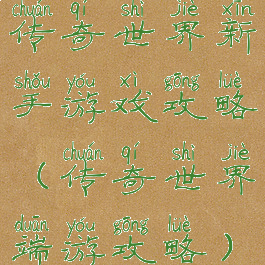 chuán qí shì jiè xīn
传奇世界新
shǒu yóu xì gōng lüè
手游戏攻略
chuán qí shì jiè
（传奇世界
duān yóu gōng lüè
端游攻略）